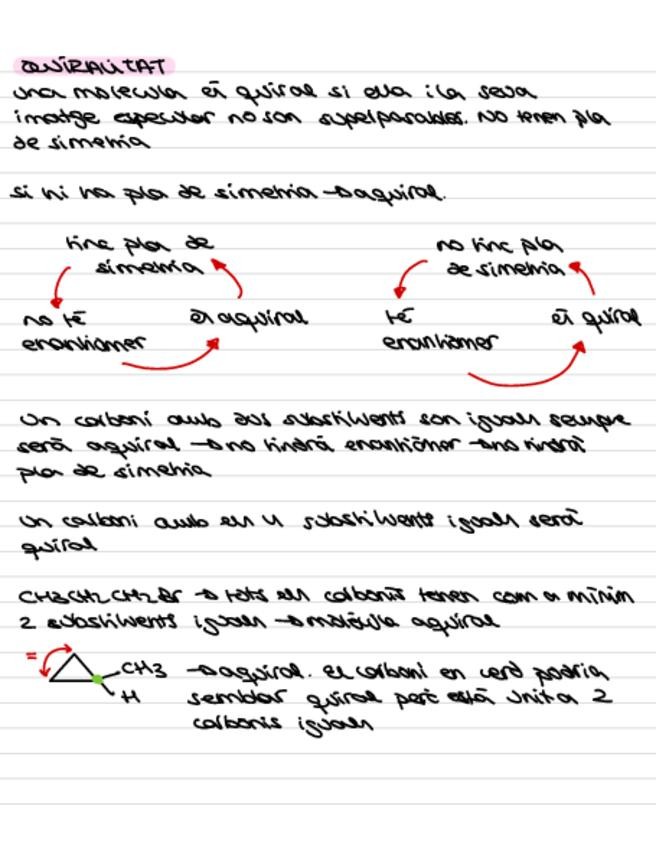 QUIRALITAT
una molecula és quiral si ella i la seva
imatge especular no son superparables. No tenen pla
de simetria
si hi ha pla de simetria → aquiral.
tinc pla de
simetria
no té
enantiòmer
és aquiral
no tinc pla
de simetria
té
enantiòmer
és quiral
un carboni amb dos substituents son iguals sempre
serà aquiral → no tindrà enantiòmer → no tindrà
pla de simetria
un carboni amb els 4 substituents iguals serà
quiral
CH3CH2CH2Br → tots els carbonis tenen com a mínim
2 substituents iguals → molècula aquiral
=
CH3
H
→ aquiral. el carboni en verd podria
semblar quiral però està unit a 2
carbonis iguals